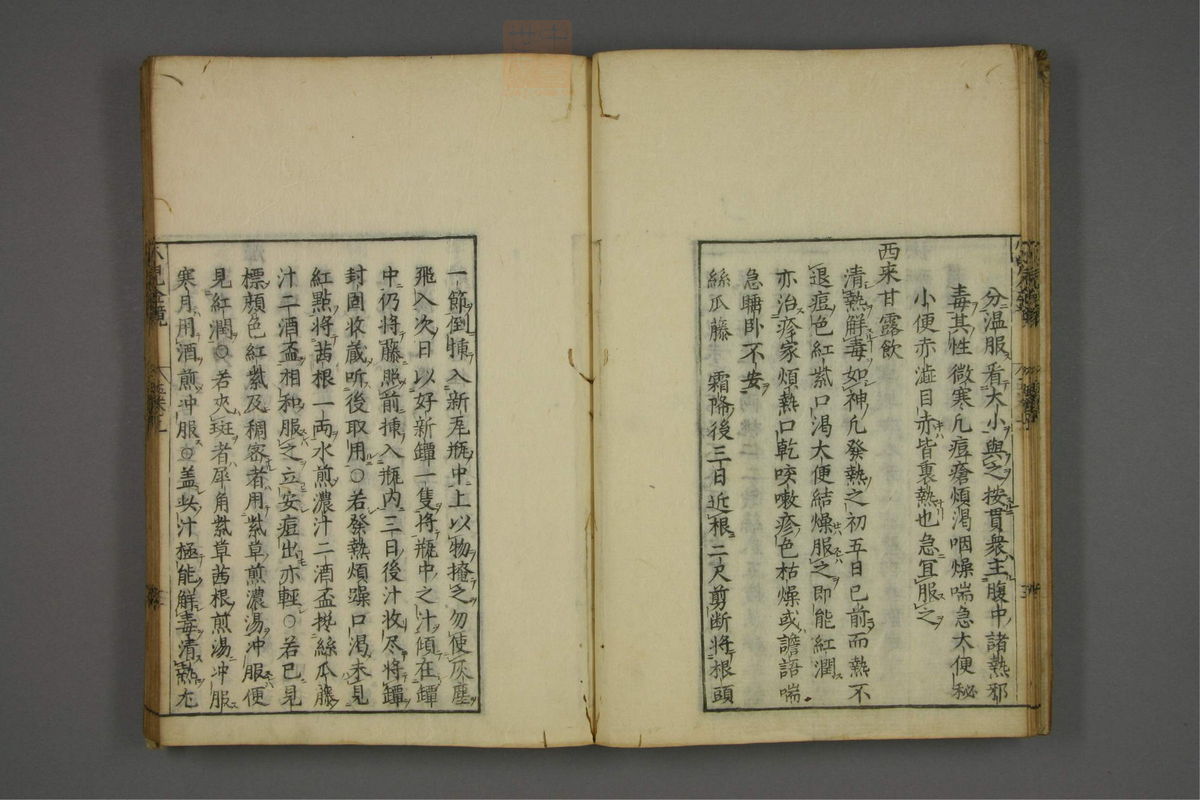 分温服看大小與之按貫衆主腹中諸熱邪
毒其性微寒凢痘瘡煩渇咽燥喘急大便秘
小便赤澁目赤皆裏熱也急冝服之
西來甘露飲
清熱解毒如神凢發熱之初五日已前而熱不
退痘色紅紫口渇大便結燥服之即能紅潤
亦治疹家煩熱口乾咳嗽疹色枯燥或譫語喘
急睡卧不安
絲瓜藤 霜降後三日近根二尺剪断将根頭
一節倒揷入新瓦瓶中上以物掩之勿使灰塵
飛入次日以好新罈一隻将瓶中之汁傾在罈
中仍将藤照前揷入瓶内三日後汁收尽将罈
封固收蔵听後取用○若發熱煩躁口渇未見
紅點将茜根一両水煎濃汁二酒盃攙絲瓜藤
汁二酒盃相和服之立安痘出亦軽○若已見
標顔色紅紫及稠密者用紫草煎濃湯冲服便
見紅潤○若夾斑者犀角紫草茜根煎湯冲服
寒月用酒煎冲服○盖此汁極能解毒清熱尤